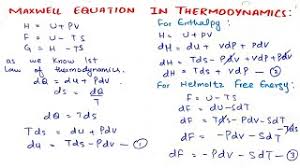 MAXWELL EQUATION IN THERMODYNAMICS:
H = U + PV
F = U - TS
G = H - TS
as we know Ist
Law of thermodynamics.
dQ = du + Pdv
ds = dQ
T
dQ = Tds
Tds = du + Pdv
du = Tds - Pdv — ①
For Enthalpy:
H = U + PV
dH = du + vdP + Pdv
dH = Tds - Pdv + vdP + Pdv
dH = Tds + vdP — ②
For Helmoltz Free Energy:
F = U - TS
dF = du - Tds - SdT
dF = Tds - Pdv - Tds - SdT
dF = -Pdv - SdT — ③